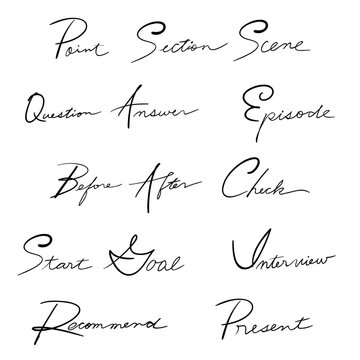 Point Section Scene
Question Answer Episode
Before After Check
Start Goal Interview
Recommend Present